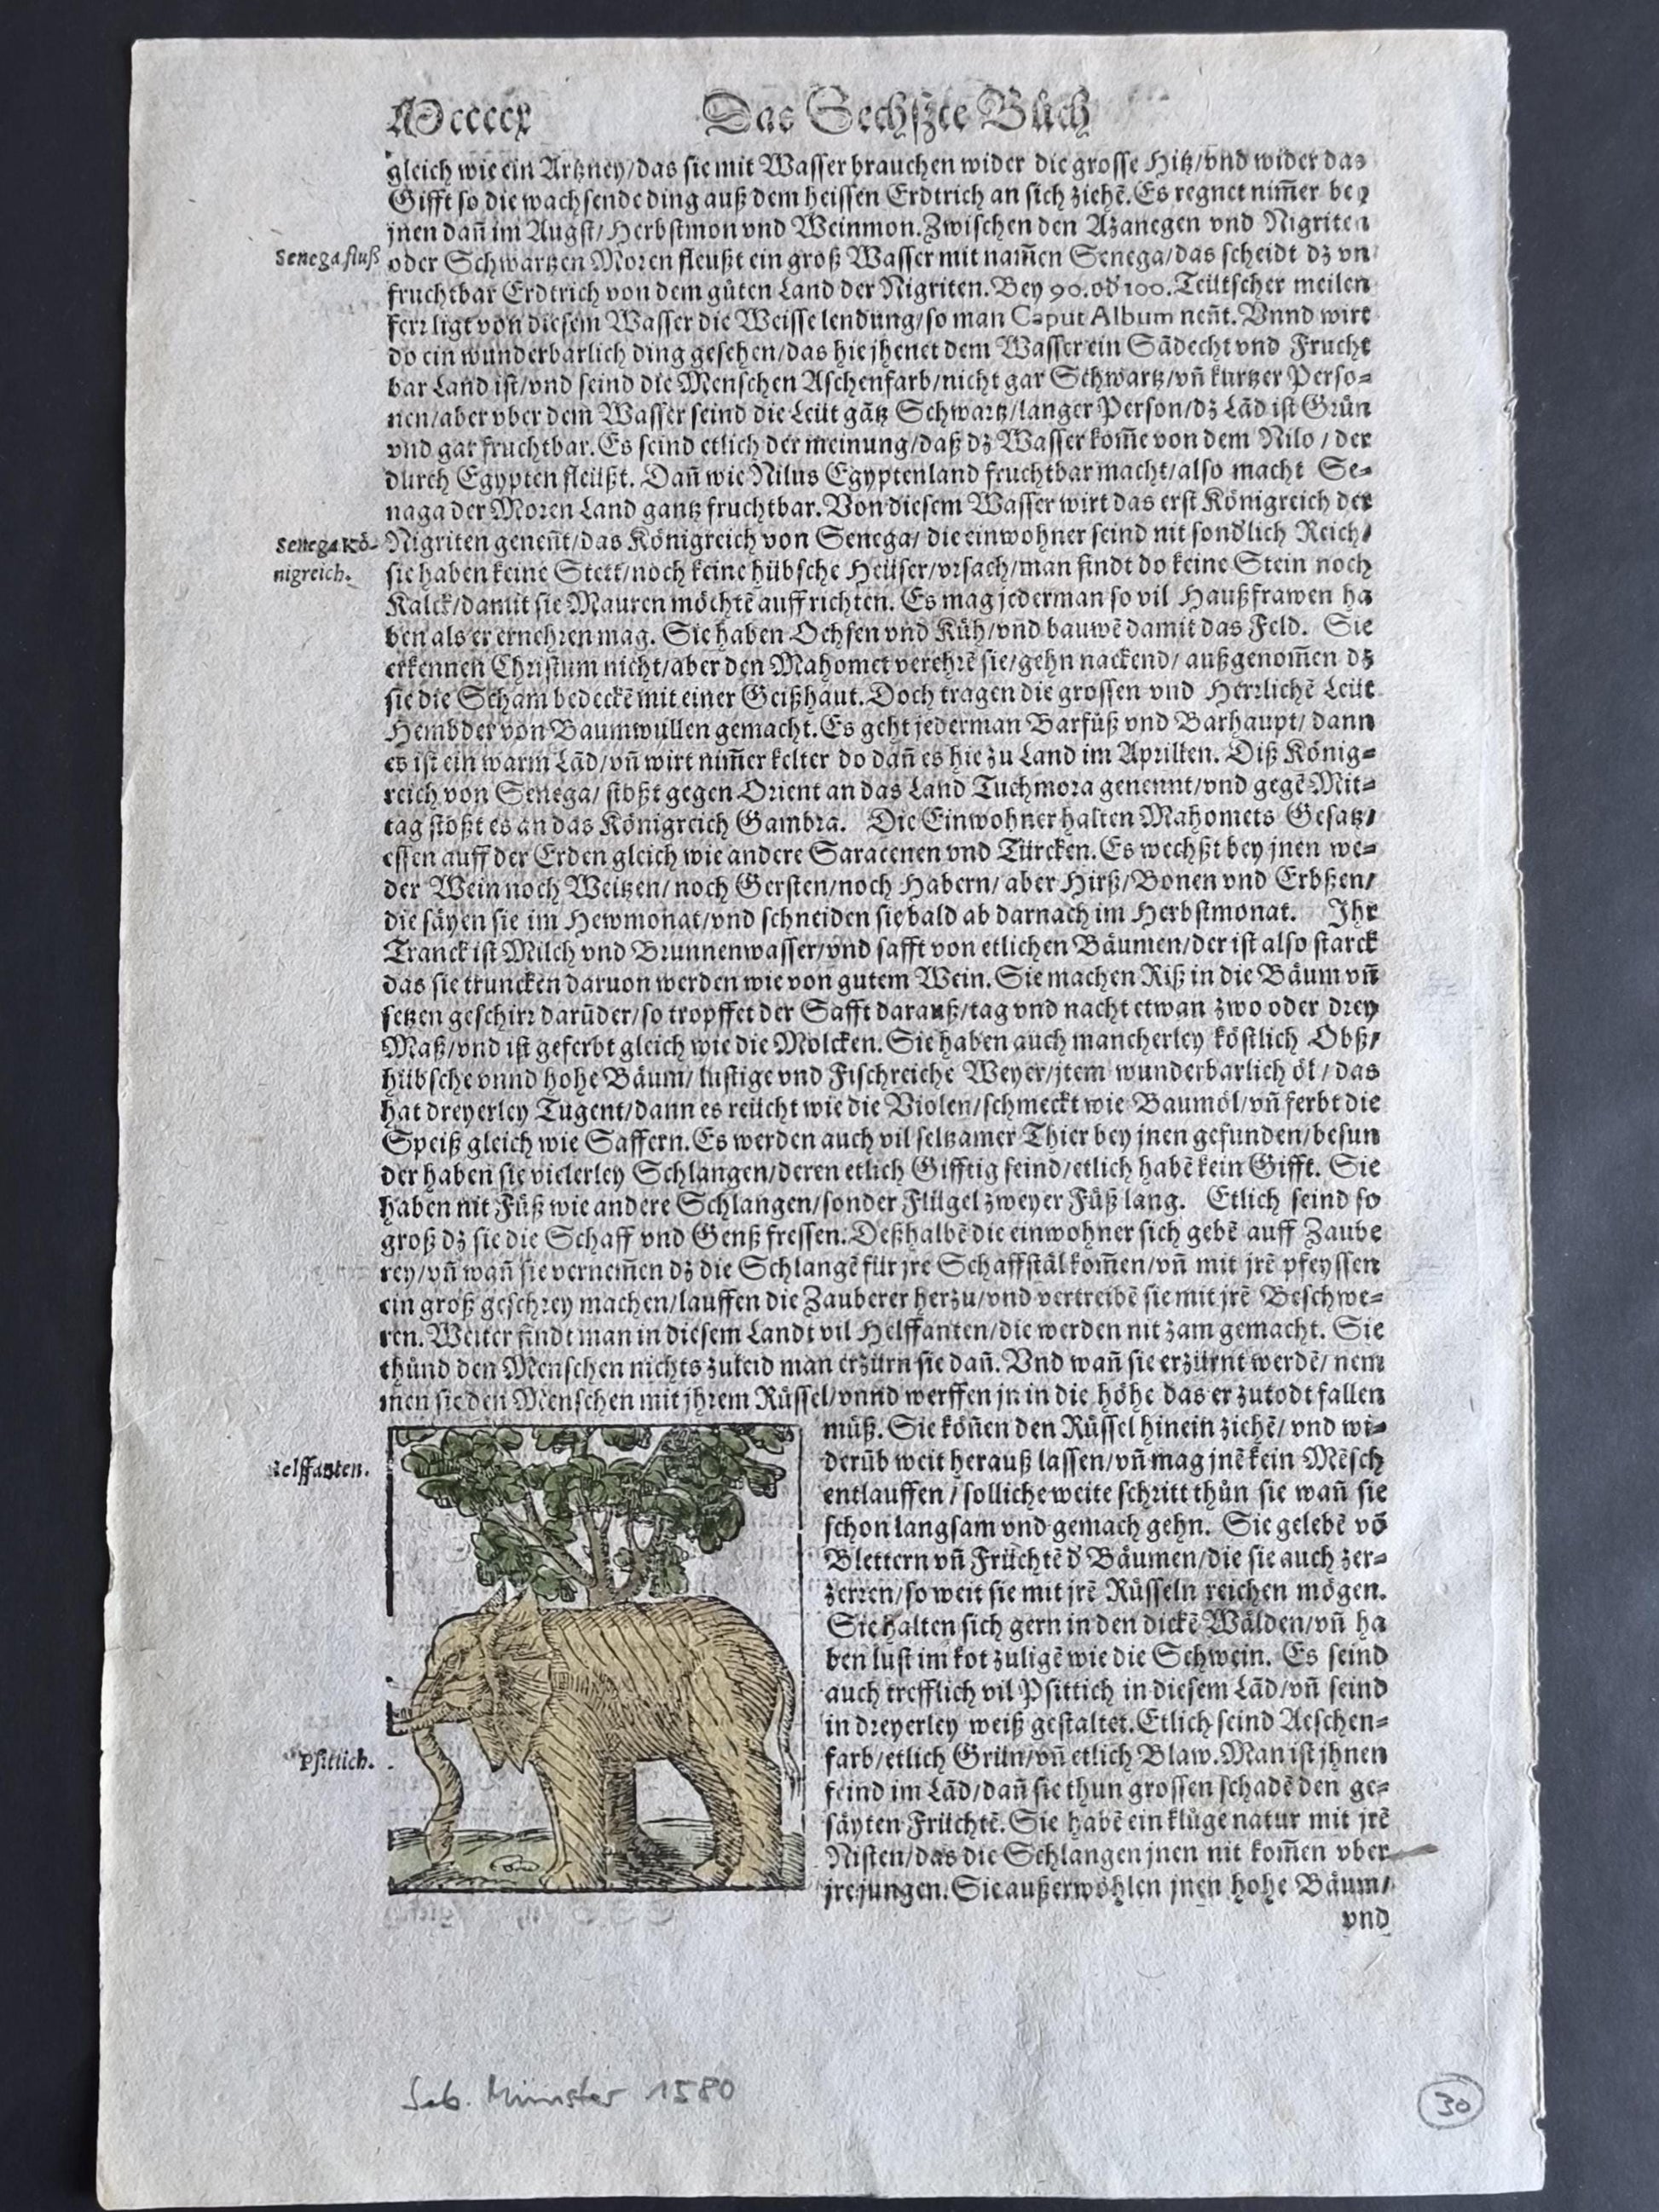 MDccccx Das Sechszte Bůch
gleich wie ein Artzney/das sie mit Wasser brauchen wider die grosse Hitz/vnd wider das
Gifft so die wachsende ding auß dem heissen Erdtrich an sich ziehē. Es regnet nim̄er bey
jnen dañ im Augst/Herbstmon vnd Weinmon. Zwischen den Azanegen vnd Nigriten
Senega fluß
oder Schwartzen Moren fleußt ein groß Wasser mit nam̄en Senega/das scheidt dz vn
fruchtbar Erdtrich von dem gůten Land der Nigriten. Bey 90. od' 100. Teütscher meilen
ferr ligt von diesem Wasser die Weisse lendung/so man Caput Album neñt. Vnnd wirt
do ein wunderbarlich ding gesehen/das hie jhenet dem Wasser ein Sādecht vnd Frucht
bar Land ist/vnd seind die Menschen Aschenfarb/nicht gar Schwartz/vñ kurtzer Perso-
nen/aber vber dem Wasser seind die Leüt gātz Schwartz/langer Person/dz Lād ist Grůn
vnd gar fruchtbar. Es seind etlich der meinung/daß dz Wasser kom̄e von dem Nilo/der
durch Egypten fleüßt. Dañ wie Nilus Egyptenland fruchtbar macht/also macht Se-
naga der Moren Land gantz fruchtbar. Von diesem Wasser wirt das erst Königreich der
Senega Kö-
nigreich.
Nigriten geneñt/das Königreich von Senega/die einwohner seind nit sond'lich Reich/
sie haben keine Stett/noch keine hübsche Heüser/vrsach/man findt do keine Stein noch
Kalck/damit sie Mauren möchtē auffrichten. Es mag jederman so vil Haußfrawen ha
ben als er ernehren mag. Sie haben Ochsen vnd Küh/vnd bauwē damit das Feld. Sie
erkennen Christum nicht/aber den Mahomet verehrē sie/gehn nackend/außgenom̄en dz
sie die Scham bedeckē mit einer Geißhaut. Doch tragen die grossen vnd Herrlichē Leüt
Hembder von Baumwullen gemacht. Es geht jederman Barfůß vnd Barhaupt/dann
es ist ein warm Lād/vñ wirt nim̄er kelter do dañ es hie zu Land im Aprillen. Diß König-
reich von Senega/stößt gegen Orient an das Land Tuchmora genennt/vnd gegē Mit-
tag stößt es an das Königreich Gambra. Die Einwohner halten Mahomets Gesatz/
essen auff der Erden gleich wie andere Saracenen vnd Türcken. Es wechßt bey jnen we-
der Wein noch Weitzen/noch Gersten/noch Habern/aber Hirß/Bonen vnd Erbßen/
die säyen sie im Hewmonat/vnd schneiden sie bald ab darnach im Herbstmonat. Ihr
Tranck ist Milch vnd Brunnenwasser/vnd safft von etlichen Bäumen/der ist also starck
das sie truncken daruon werden wie von gutem Wein. Sie machen Riß in die Bäum vñ
setzen geschirr darůder/so tropffet der Safft darauß/tag vnd nacht etwan zwo oder drey
Maß/vnd ist geferbt gleich wie die Molcken. Sie haben auch mancherley köstlich Obß/
hübsche vnnd hohe Bäum/lustige vnd Fischreiche Weyer/jtem wunderbarlich öl/das
hat dreyerley Tugent/dann es reücht wie die Violen/schmeckt wie Baumöl/vñ ferbt die
Speiß gleich wie Saffern. Es werden auch vil seltzamer Thier bey jnen gefunden/besun
der haben sie vielerley Schlangen/deren etlich Gifftig seind/etlich habē kein Gifft. Sie
haben nit Fůß wie andere Schlangen/sonder Flügel zweyer Fůß lang. Etlich seind so
groß dz sie die Schaff vnd Genß fressen. Deßhalbē die einwohner sich gebē auff Zaube
rey/vñ wañ sie vernem̄en dz die Schlangē für jre Schaffstäl kom̄en/vñ mit jrē pfeyssen
ein groß geschrey machen/lauffen die Zauberer herzu/vnd vertreibē sie mit jrē Beschwe-
ren. Weiter findt man in diesem Landt vil Helffanten/die werden nit zam gemacht. Sie
thůnd den Menschen nichts zuleid man erzürn sie dañ. Vnd wañ sie erzürnt werdē/nem
men sie den Menschen mit jhrem Rüssel/vnnd werffen jn in die höhe das er zutodt fallen
můß. Sie köñen den Rüssel hinein ziehē/vnd wi-
Helffanten.
derůb weit herauß lassen/vñ mag jnē kein Mēsch
entlauffen/solliche weite schritt thůn sie wañ sie
schon langsam vnd gemach gehn. Sie gelebē vō
Blettern vñ Früchtē d' Bäumen/die sie auch zer-
zerren/so weit sie mit jrē Rüsseln reichen mögen.
Sie halten sich gern in den dickē Wälden/vñ ha
ben lust im kot zuligē wie die Schwein. Es seind
auch trefflich vil Psittich in diesem Lād/vñ seind
in dreyerley weiß gestaltet. Etlich seind Aeschen-
Psittich.
farb/etlich Grün/vñ etlich Blaw. Man ist jhnen
feind im Lād/dañ sie thun grossen schadē den ge-
säyten Früchtē. Sie habē ein klůge natur mit jrē
Nisten/das die Schlangen jnen nit kom̄en vber
jre jungen. Sie außerwöhlen jnen hohe Bäum/
vnd
Seb. Münster 1580
30